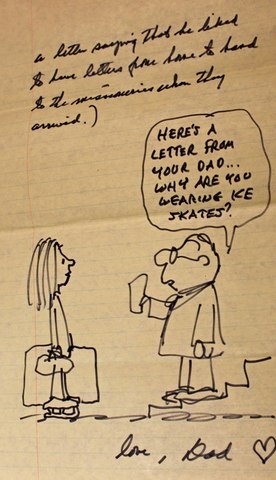 a letter saying that he liked
to have letters from home to hand
to the missionaries when they
arrived.)
HERE'S A
LETTER FROM
YOUR DAD...
WHY ARE YOU
WEARING ICE
SKATES?
love, Dad ♡